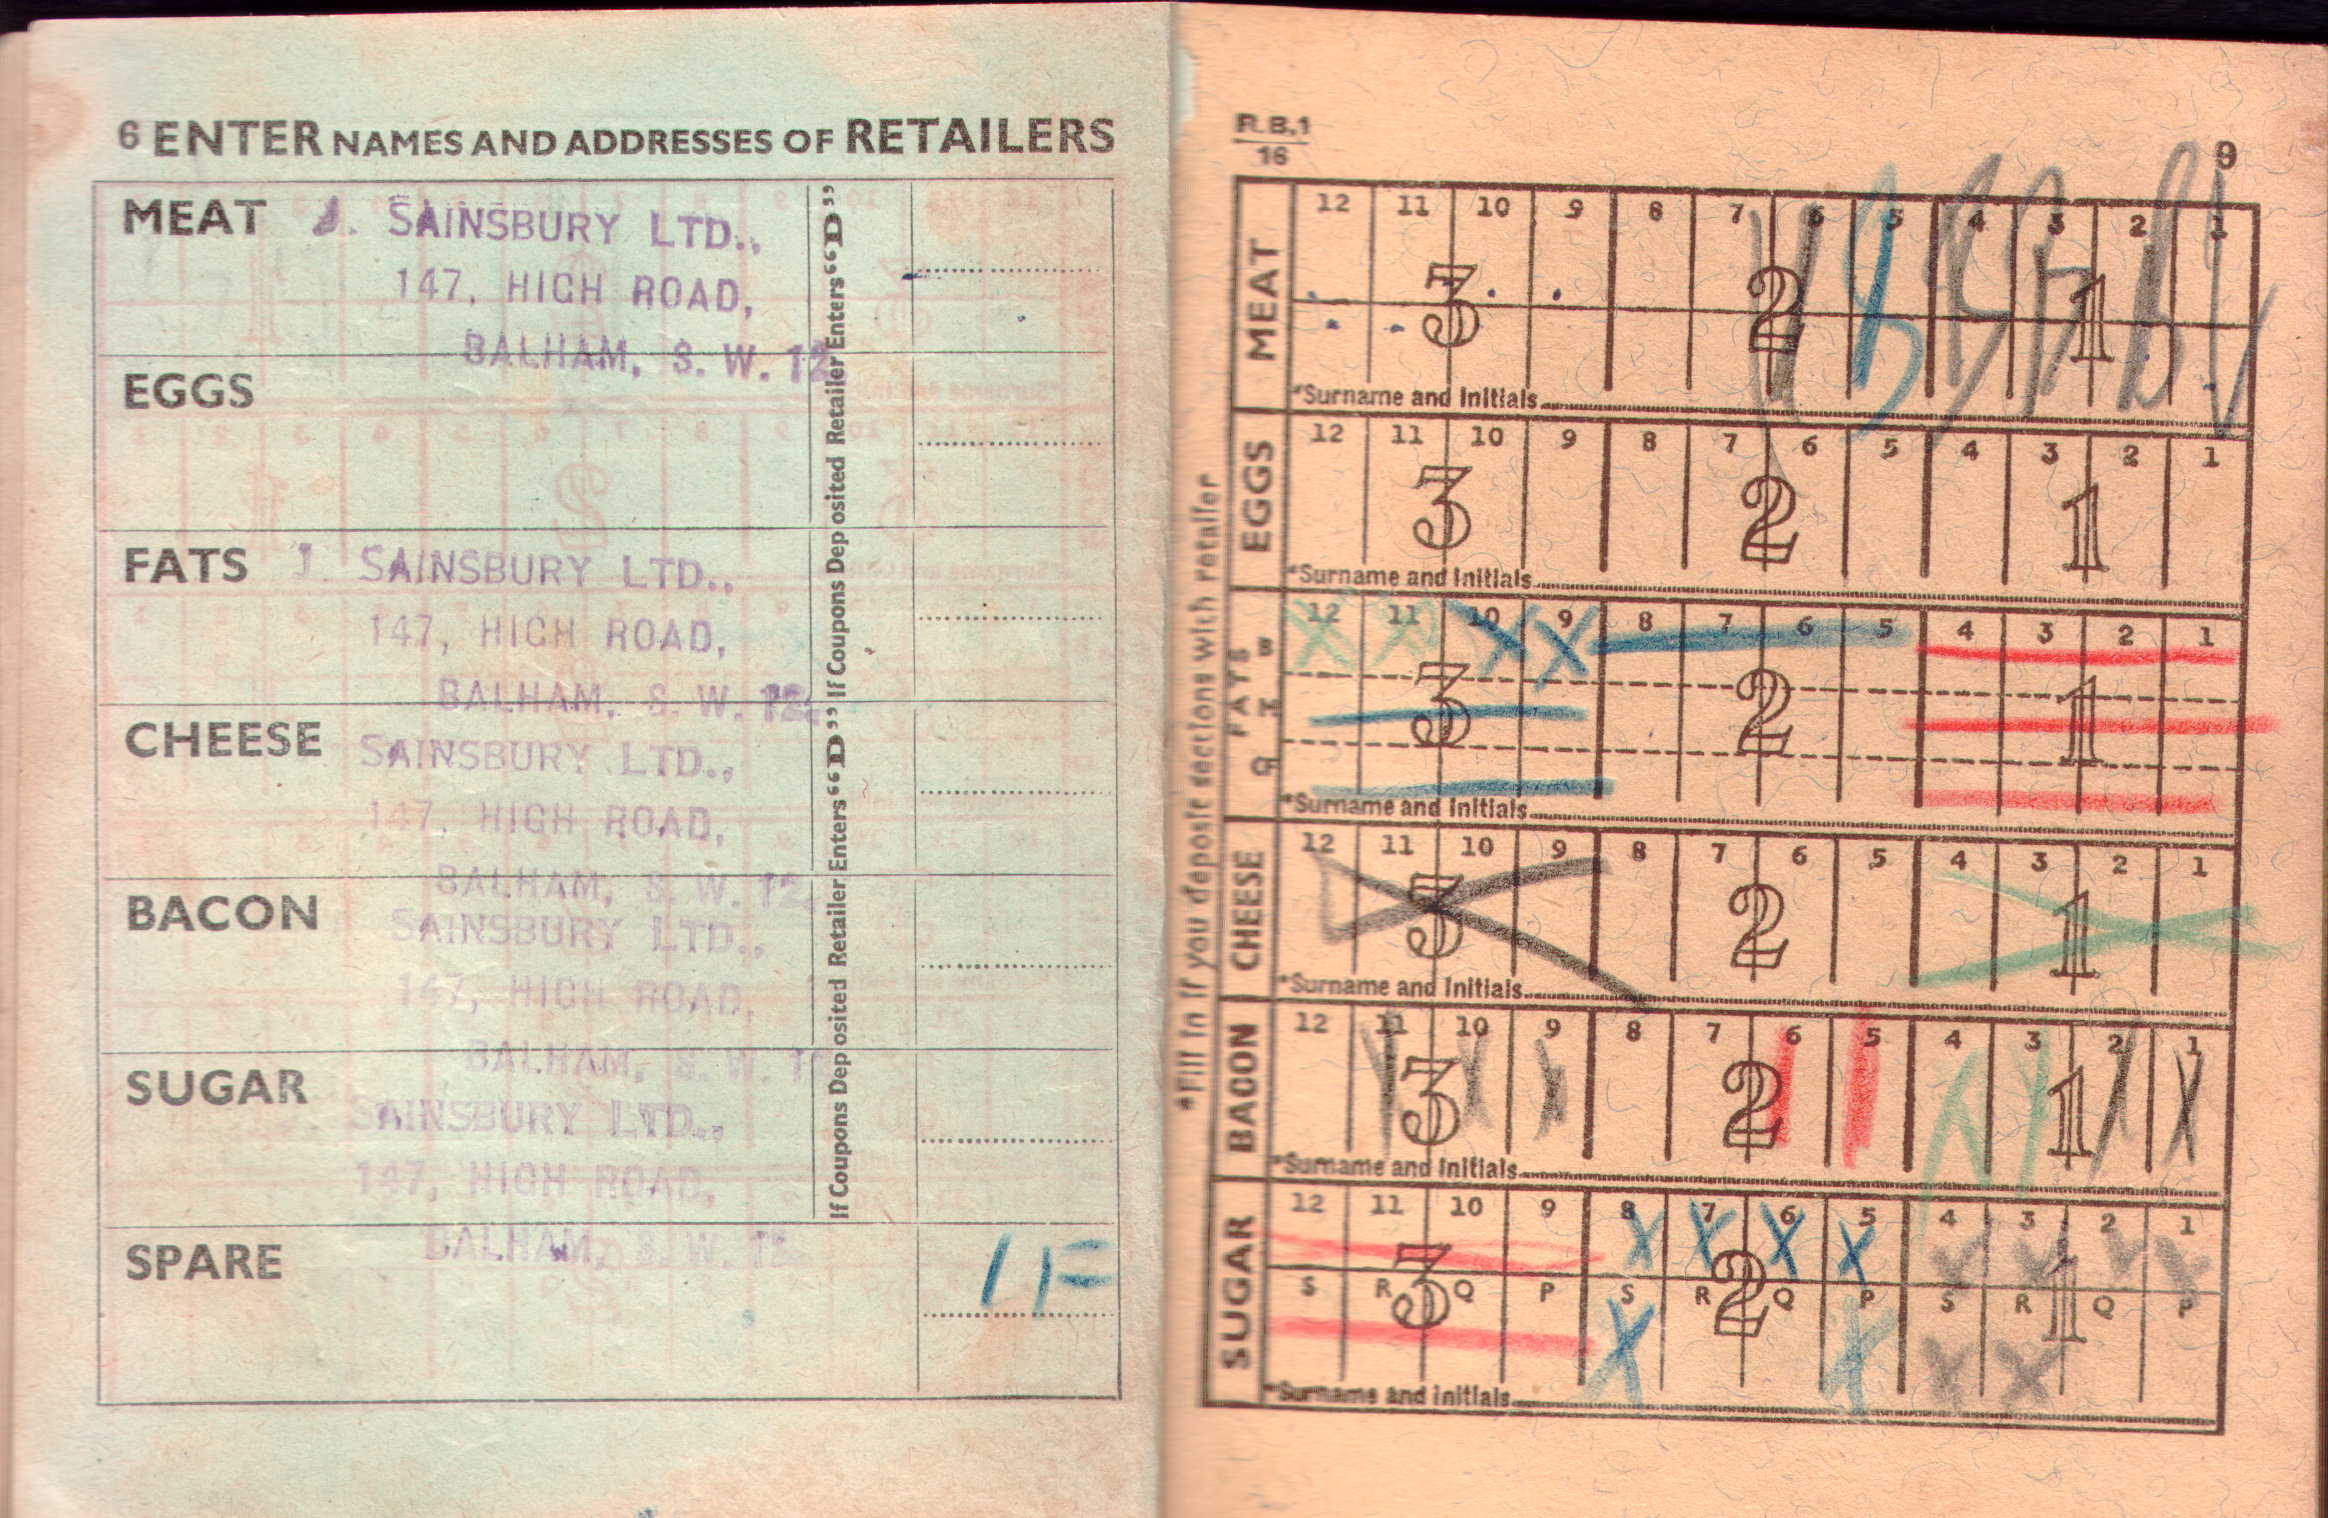 6 ENTER NAMES AND ADDRESSES OF RETAILERS
MEAT J. SAINSBURY LTD.,
147, HIGH ROAD,
BALHAM, S. W. 12
EGGS
FATS J. SAINSBURY LTD.,
147, HIGH ROAD,
BALHAM, S. W. 12.
CHEESE SAINSBURY LTD.,
147, HIGH ROAD,
BALHAM, S. W. 12.
BACON SAINSBURY LTD.,
147, HIGH ROAD,
BALHAM, S. W. 1
SUGAR SAINSBURY LTD.,
147, HIGH ROAD,
BALHAM, S. W. 12
SPARE
If Coupons Deposited Retailer Enters "D" If Coupons Deposited Retailer Enters "D"
R.B.1
16
9
*Fill in if you deposit sections with retailer
MEAT
12 11 10 9 8 7 6 5 4 3 2 1
3 2 1
*Surname and Initials
EGGS
12 11 10 9 8 7 6 5 4 3 2 1
3 2 1
*Surname and Initials
FATS
12 11 10 9 8 7 6 5 4 3 2 1
3 2 1
*Surname and Initials
CHEESE
12 11 10 9 8 7 6 5 4 3 2 1
3 2 1
*Surname and Initials
BACON
12 11 10 9 8 7 6 5 4 3 2 1
3 2 1
*Surname and Initials
SUGAR
12 11 10 9 8 7 6 5 4 3 2 1
3 2 1
S R Q P S R Q P S R Q P
*Surname and Initials